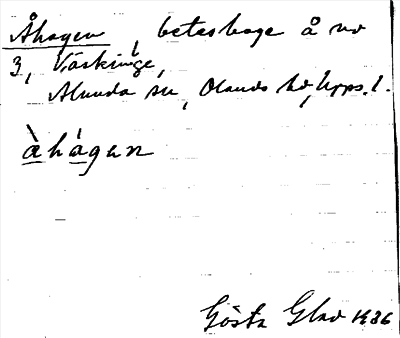 Åhagen, beteshage å no
3, Väskinge,
Alunda sn, Olands hd, Upps. l.
àhágen
Gösta Glav 1936